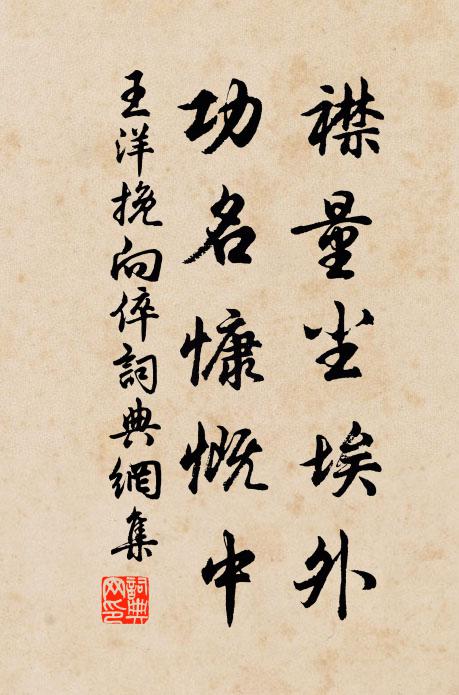 襟量尘埃外
功名慷慨中
王洋挽向倅詞典網集
詞典网印